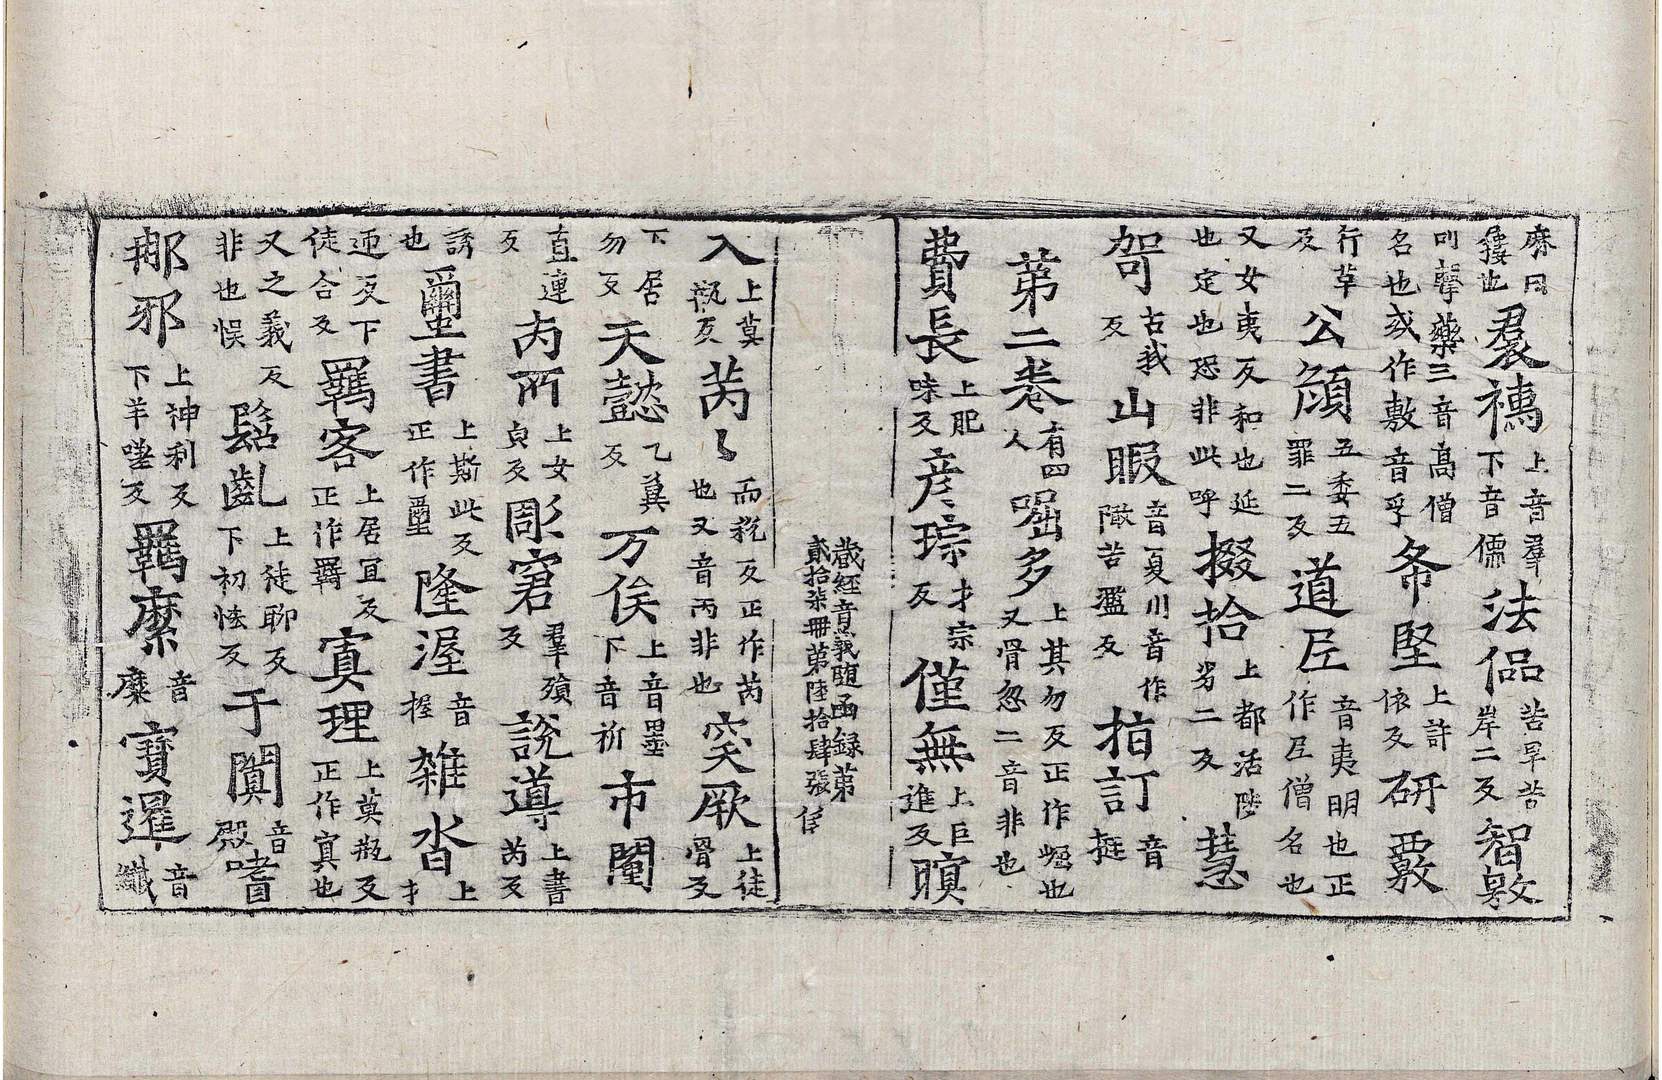 麻日㺔也羣襦上音羣下音儒法侃苦旱苦岸二反智敫
叫擊藥三音高僧名也或作敷音孚条堅上許依反研覈
行草反公頎五委五罪二反道𡰱音夷明也正作𡰱僧名也
又女夷反和也延也定也恐非此呼掇拾上都活陟劣二反慧
哿古我反山暇音夏川音作㘎苦濫反拍訂音挺
第二卷有四人崛多上其勿反正作崛也又骨忽二音非也
費長上肥味反彦琮才宗反僅無上巨進反瞑
藏經音義隨函録第
貳拾柒冊第陸拾肆張
入上莫瓶反芮〻而税反正作芮也又音丙非也突厥上徒骨反
下居勿反天懿乙冀反万俟上音墨下音祈市闤
直連反㐫所上女貞反彫窘羣殞反説導上書芮反
誘也壐書上斯此反正作壐隆渥音握雜沓上才
迊反下徒合反羈客上居宜反正作羇寘理上莫瓶反正作寘也
又之義反非也悮髫齓上徒聊反下初恡反于闐音殿嗜
那邪上神利反下羊嗟反羈縻音糜寶暹音纖